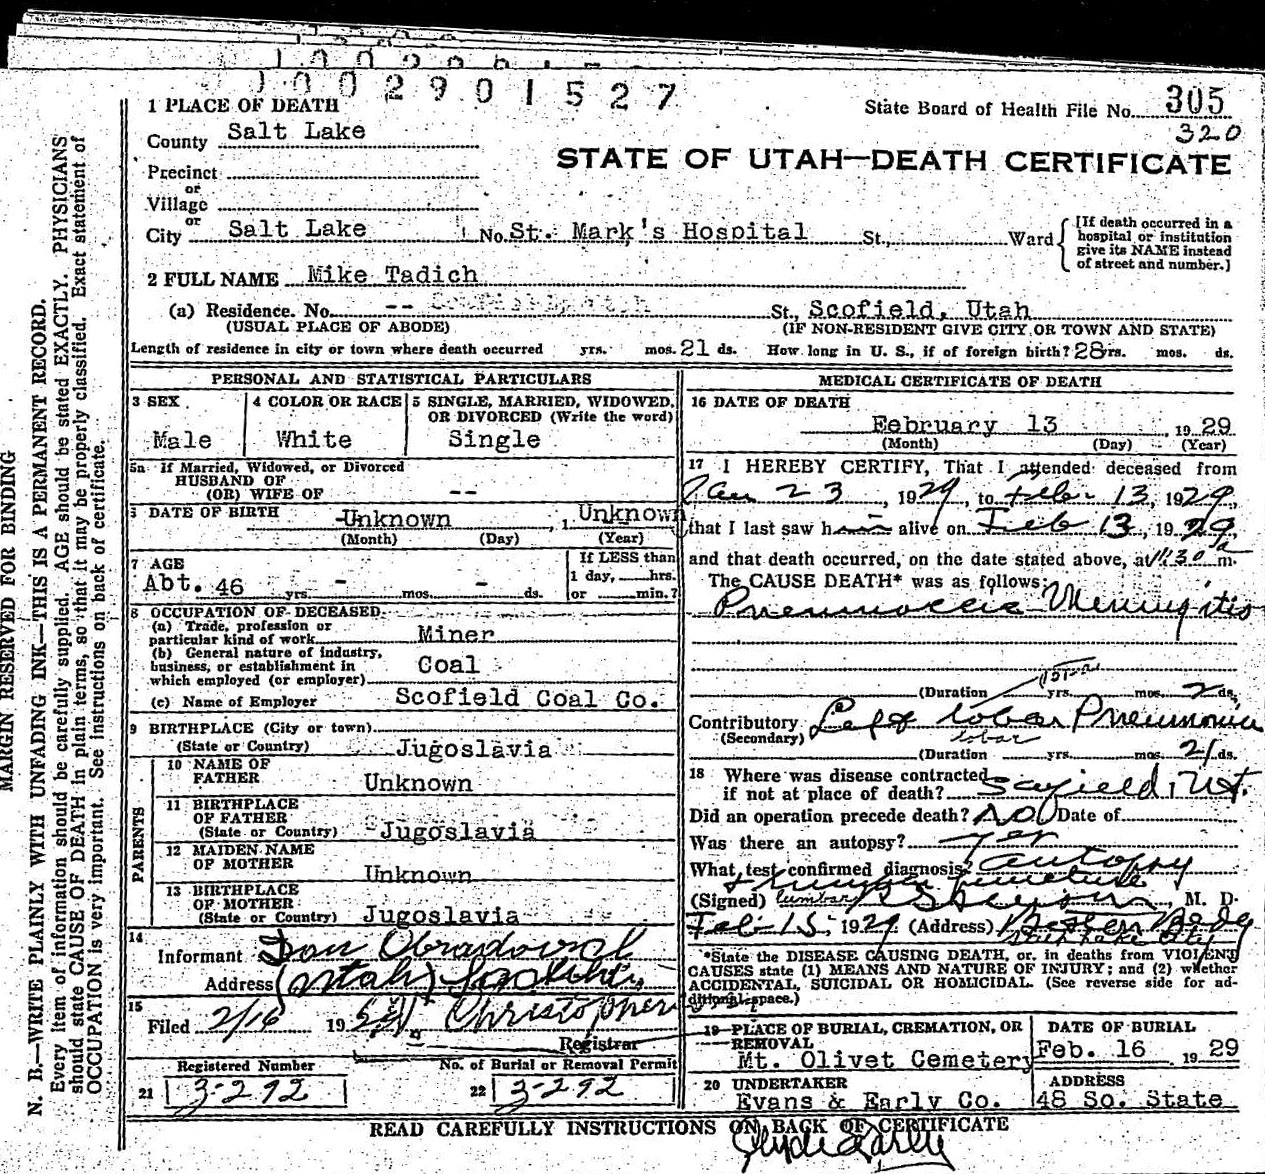 1002901527
1 PLACE OF DEATH
State Board of Health File No. 305
320
County Salt Lake
STATE OF UTAH—DEATH CERTIFICATE
Precinct
or
Village
or
City Salt Lake No. St. Mark's Hospital St., Ward
[If death occurred in a
hospital or institution
give its NAME instead
of street and number.]
2 FULL NAME Mike Tadich
(a) Residence. No. -- St., Scofield, Utah
(USUAL PLACE OF ABODE) (IF NON-RESIDENT GIVE CITY OR TOWN AND STATE)
Length of residence in city or town where death occurred yrs. mos. 21 ds. How long in U. S., if of foreign birth? 28 yrs. mos. ds.
PERSONAL AND STATISTICAL PARTICULARS
3 SEX
Male
4 COLOR OR RACE
White
5 SINGLE, MARRIED, WIDOWED,
OR DIVORCED (Write the word)
Single
5a If Married, Widowed, or Divorced
HUSBAND OF
(OR) WIFE OF --
DATE OF BIRTH -Unknown , 1 Unknown
(Month) (Day) (Year)
7 AGE
Abt. 46 yrs. - mos. - ds.
If LESS than
1 day, hrs.
or min.?
8 OCCUPATION OF DECEASED
(a) Trade, profession or
particular kind of work Miner
(b) General nature of industry,
business, or establishment in
which employed (or employer) Coal
(c) Name of Employer Scofield Coal Co.
9 BIRTHPLACE (City or town)
(State or Country) Jugoslavia
PARENTS
10 NAME OF
FATHER Unknown
11 BIRTHPLACE
OF FATHER
(State or Country) Jugoslavia
12 MAIDEN NAME
OF MOTHER Unknown
13 BIRTHPLACE
OF MOTHER
(State or Country) Jugoslavia
14
Informant Dan
Address (Utah)
15
Filed 2/16 19 Christopherson
Registrar
Registered Number
21 3-292
No. of Burial or Removal Permit
22 3-292
MEDICAL CERTIFICATE OF DEATH
16 DATE OF DEATH
February 13 1929
(Month) (Day) (Year)
17 I HEREBY CERTIFY, That I attended deceased from
Jan 23, 1929, to Feb 13, 1929,
that I last saw him alive on Feb 13, 1929,
and that death occurred, on the date stated above, at 11:30 a m.
The CAUSE DEATH* was as follows:
Pneumoccic Meningitis
(Duration yrs. mos. 2 ds.
Contributory Left lobar Pneumonia
(Secondary) lobar
(Duration yrs. mos. 21 ds.
18 Where was disease contracted
if not at place of death? Scofield, Ut.
Did an operation precede death? No Date of
Was there an autopsy? Yes
What test confirmed diagnosis? autopsy
+ puncture
(Signed) lumbar , M. D.
Feb 15, 1929 (Address) Boston Bldg
Salt Lake City
*State the DISEASE CAUSING DEATH, or, in deaths from VIOLENT
CAUSES state (1) MEANS AND NATURE OF INJURY; and (2) whether
ACCIDENTAL, SUICIDAL OR HOMICIDAL. (See reverse side for ad-
ditional space.)
19 PLACE OF BURIAL, CREMATION, OR
REMOVAL
Mt. Olivet Cemetery
DATE OF BURIAL
Feb. 16 1929
20 UNDERTAKER
Evans & Early Co.
ADDRESS
48 So. State
READ CAREFULLY INSTRUCTIONS ON BACK OF CERTIFICATE
MARGIN RESERVED FOR BINDING
N. B.—WRITE PLAINLY WITH UNFADING INK—THIS IS A PERMANENT RECORD.
Every item of information should be carefully supplied. AGE should be stated EXACTLY. PHYSICIANS
should state CAUSE OF DEATH in plain terms, so that it may be properly classified. Exact statement of
OCCUPATION is very important. See instructions on back of certificate.